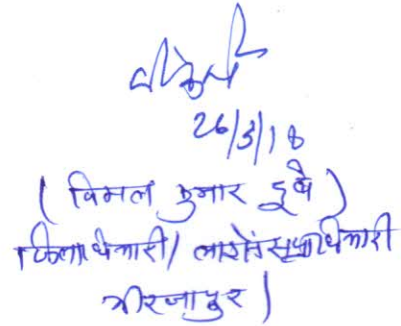 26/3/18
( विमल कुमार दुबे )
जिलाधिकारी/ लाइसेंस प्राधिकारी
मीरजापुर |